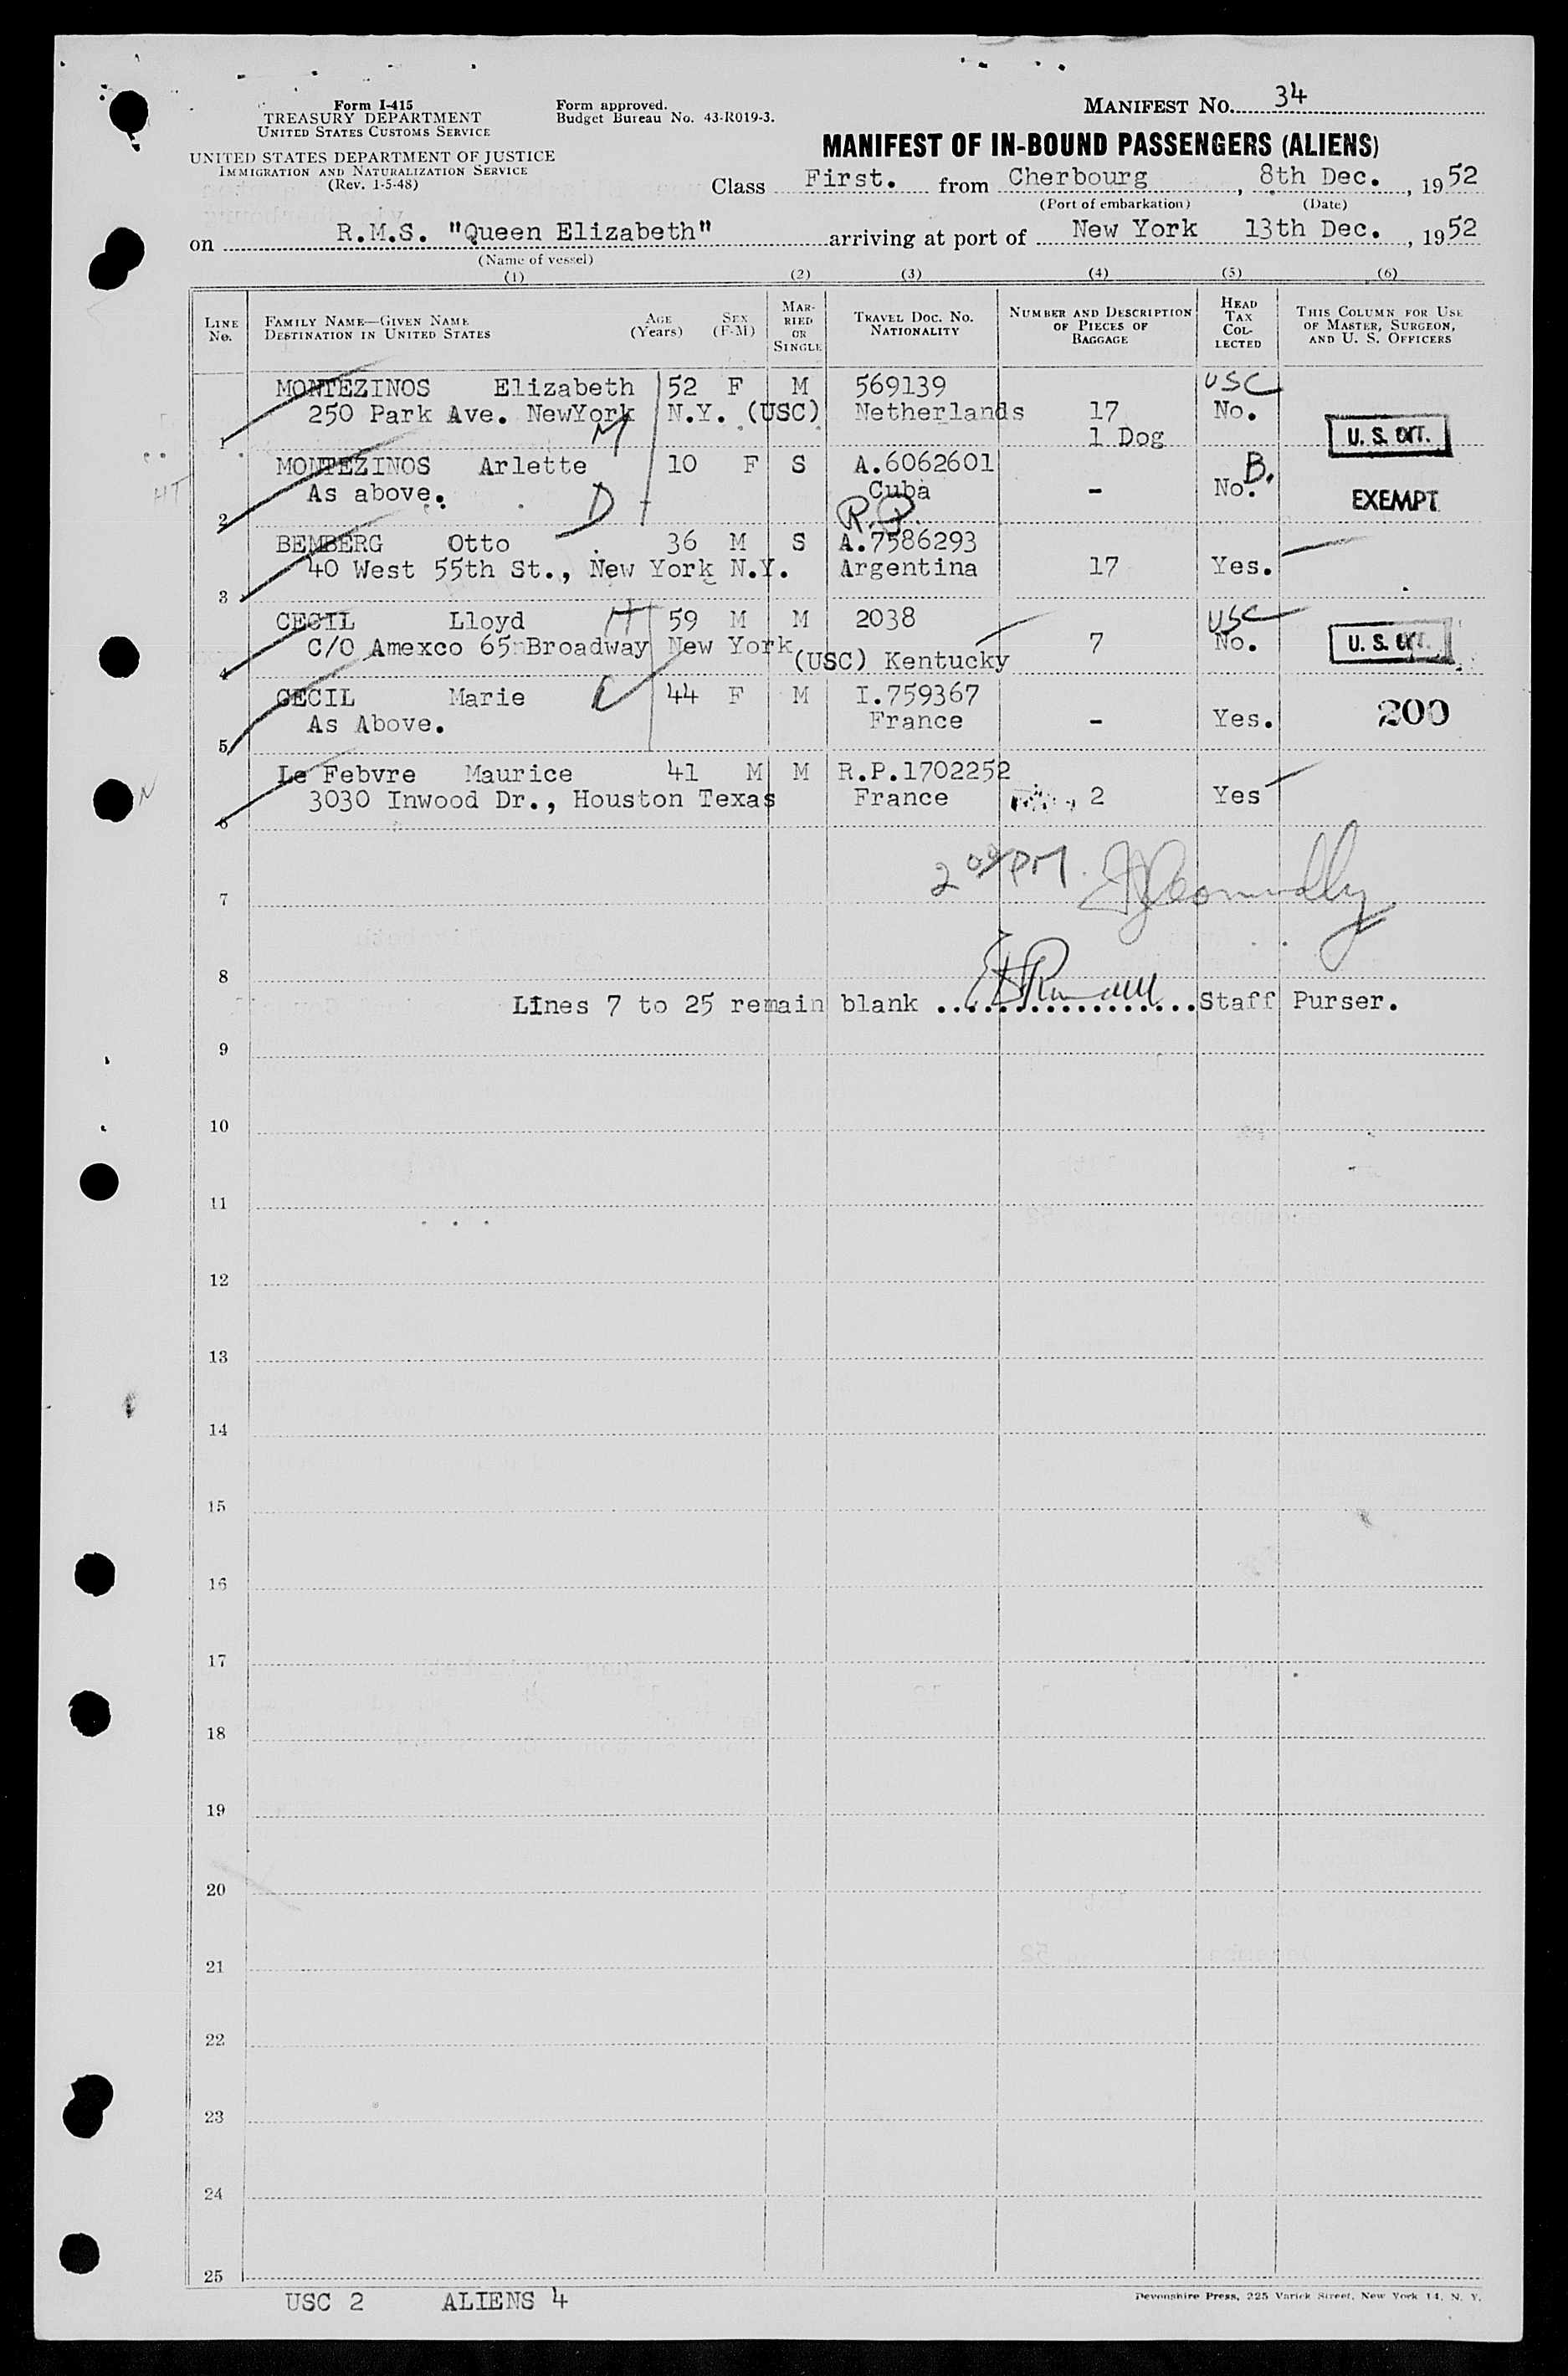 Form I-415
TREASURY DEPARTMENT
UNITED STATES CUSTOMS SERVICE
UNITED STATES DEPARTMENT OF JUSTICE
IMMIGRATION AND NATURALIZATION SERVICE
(Rev. 1-5-48)
Form approved.
Budget Bureau No. 43-R019-3.
MANIFEST NO. 34
MANIFEST OF IN-BOUND PASSENGERS (ALIENS)
Class First. from Cherbourg, 8th Dec., 1952
(Port of embarkation) (Date)
on R.M.S. "Queen Elizabeth" arriving at port of New York 13th Dec., 1952
(Name of vessel)
(1) (2) (3) (4) (5) (6)
LINE NO. FAMILY NAME—GIVEN NAME DESTINATION IN UNITED STATES AGE (Years) SEX (F-M) MARRIED OR SINGLE TRAVEL DOC. NO. NATIONALITY NUMBER AND DESCRIPTION OF PIECES OF BAGGAGE HEAD TAX COLLECTED THIS COLUMN FOR USE OF MASTER, SURGEON, AND U. S. OFFICERS
MONTEZINOS Elizabeth 52 F M 569139 USC
250 Park Ave. NewYork N.Y. (USC) Netherlands 17 No.
1 M 1 Dog U. S. CIT.
MONTEZINOS Arlette 10 F S A.6062601 B.
HT As above. Cuba - No. EXEMPT
2 D R.P.
BEMBERG Otto 36 M S A.7586293
40 West 55th St., New York N.Y. Argentina 17 Yes.
3
CECIL Lloyd H 59 M M 2038 USC
C/O Amexco 65 Broadway New York 7 No. U. S. CIT.
4 (USC) Kentucky
CECIL Marie 44 F M I.759367
As Above. France - Yes. 200
5
Le Febvre Maurice 41 M M R.P.1702252
N 3030 Inwood Dr., Houston Texas France 2 Yes
6
2 00 PM.
7
8
Lines 7 to 25 remain blank ..................Staff Purser.
9
10
11
12
13
14
15
16
17
18
19
20
21
22
23
24
25
USC 2 ALIENS 4
Devonshire Press, 225 Varick Street, New York 14, N. Y.